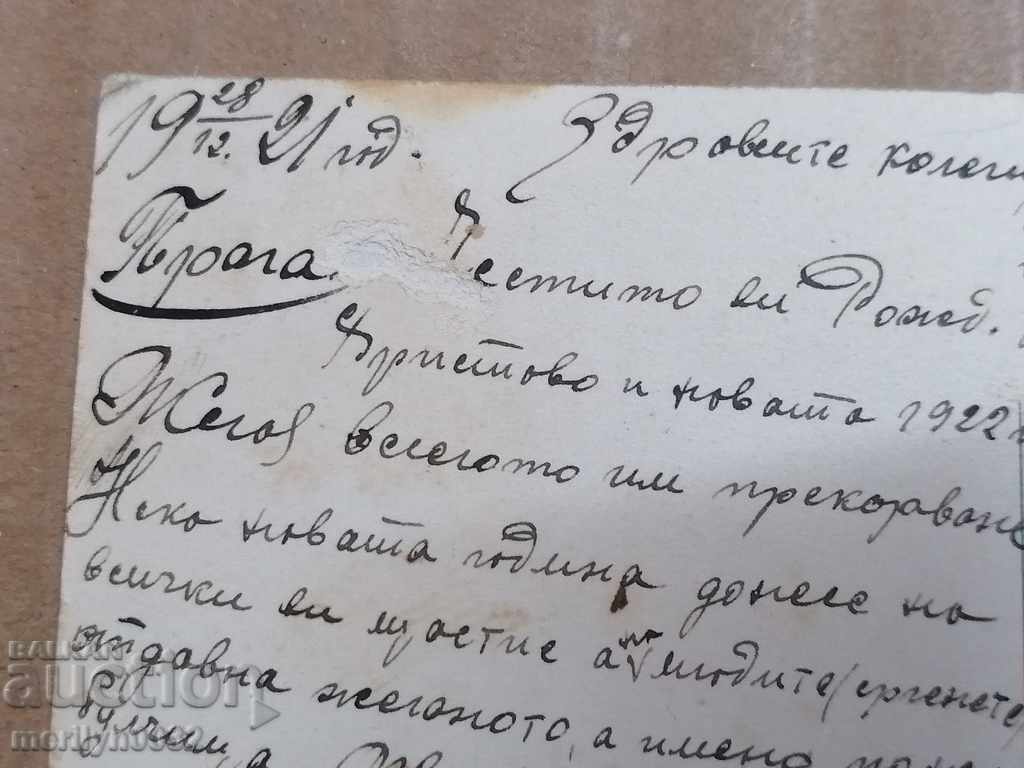 19 28/12. 21 год.
Здравейте колеги
Прага.
Честито ви Рожд.
Христово и новата 1922 г
Желая веселото им прекарване
Нека новата година донесе на
всички ви щастие а на младите (ергенете)
отдавна желаното, а именно
BALKAN
auction